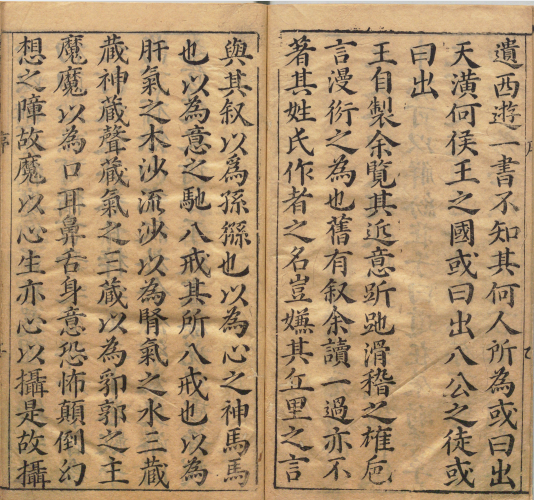 遺西遊一書不知其何人所為或曰出
天潢何侯王之國或曰出八公之徒或
曰出
王自製余覽其近意㢋跅滑稽之榷卮
言漫衍之為也舊有叙余讀一過亦不
著其姓氏作者之名豈嫌其丘里之言
與其叙以爲孫猻也以為心之神馬馬
也以為意之馳八戒其所八戒也以為
肝氣之木沙流沙以為腎氣之水三蔵
蔵神蔵聲蔵氣之三蔵以為郛郭之主
魔魔以為口耳鼻舌身意恐怖顛倒幻
想之障故魔以心生亦心以攝是故攝
序